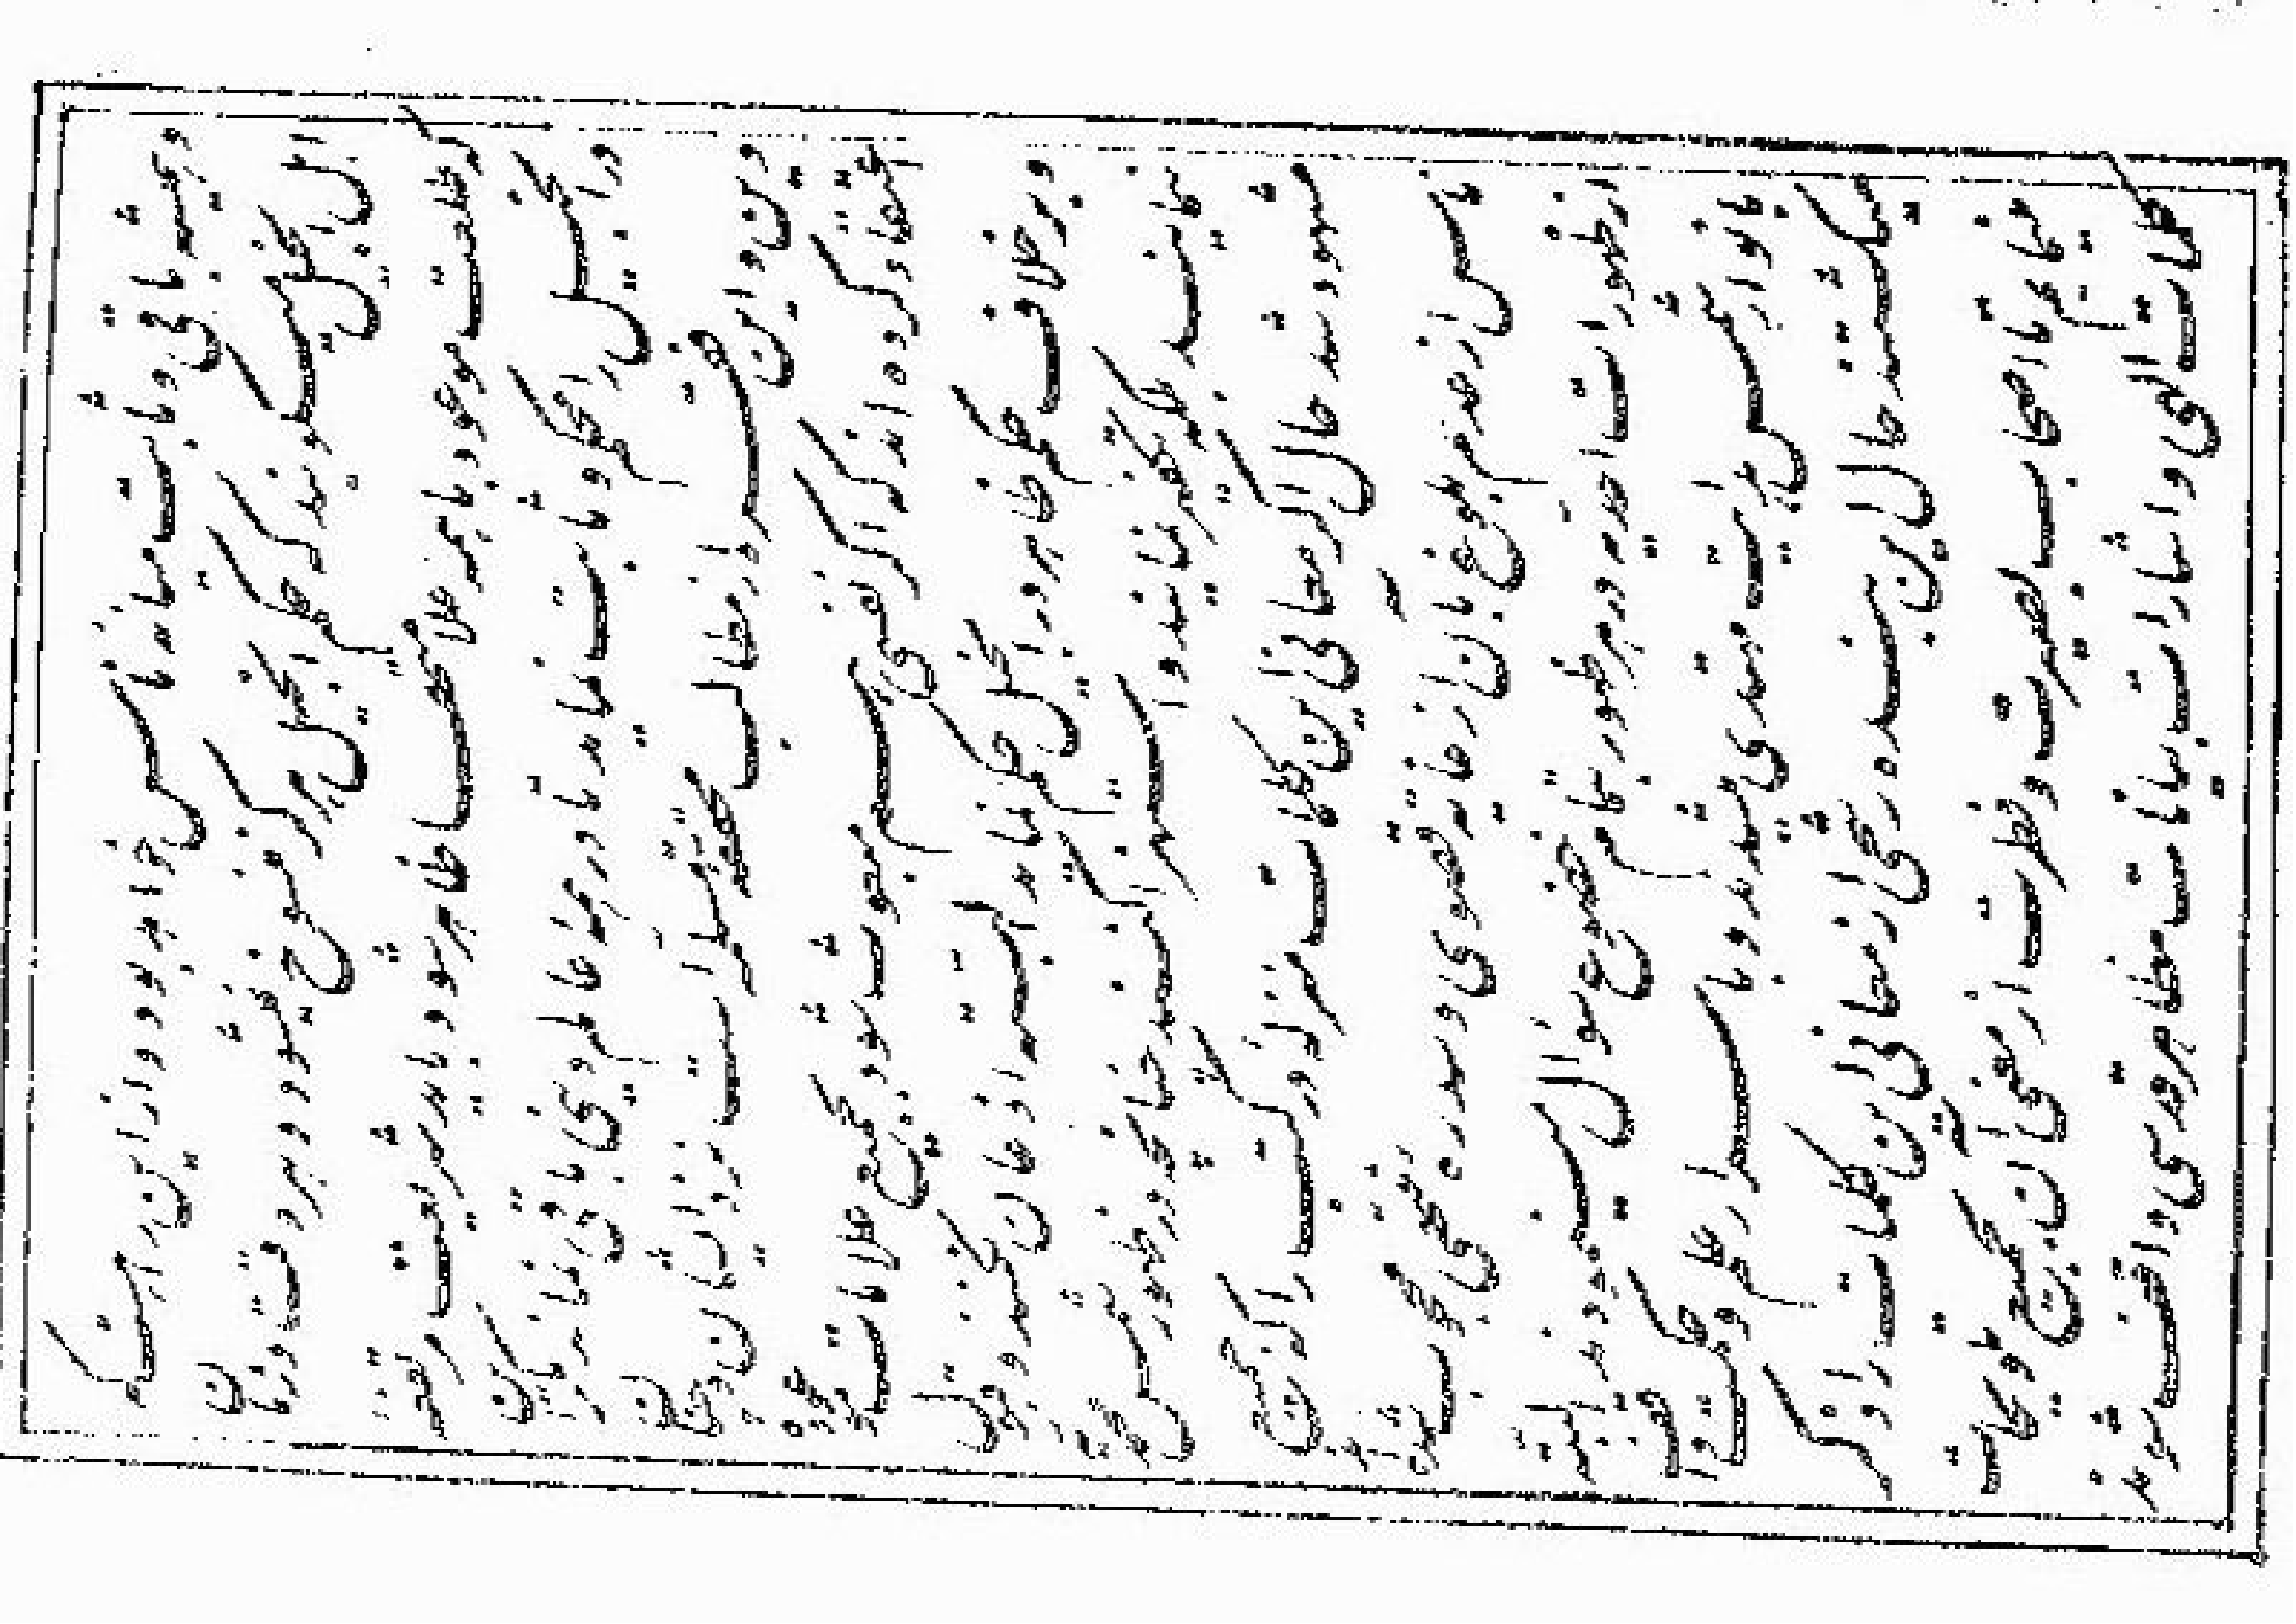 و همیشه باقی و ثابت میانه ناس خواهد بود و از این راه است که
اهل انجیل میگویند که حکم انجیل هرگز منسوخ نمیشود و هر وقت و زمان
که طلعت موعود با همه علامات ظاهر شود باید شریعت مرتفعه
در انجیل را محکم و ثابت نماید تا در همه عالم دینی باقی نماند مگر این
دین و این فقره از مطالب محققه مسلمه است نزد ایشان و چنان
اعتقاد کرده اند که اگر نفسی هم مبعوث شود بجمیع علامات موعوده
و بر خلاف حکم ظاهر در انجیل حکم نماید البته اذعان نکنند و قبول
ننمایند بلکه تکفیر نمایند و استهزاء کنند چنانچه در ظهور شمس محمدیه
مشهود شد حال اگر معانی این کلمات منزله در کتب را که جمیع
ناس از عدم بلوغ بان از غایت قصوی و سدره منتهی محجوب شده اند
از ظهورات احدیه در هر ظهور بتمام خضوع سؤال مینمودند البته
بانوار شمس هدایت مهتدی میشدند و باسرار علم و حکمت واقف
میگشتند حال این بنده رشحی از معانی این کلمات را ذکر
مینمایم تا اصحاب بصیرت و فطرت از معنی آن بجمیع تلویحات
کلمات الهی و اشارات بیانات مظاهر قدسی واقف شوند